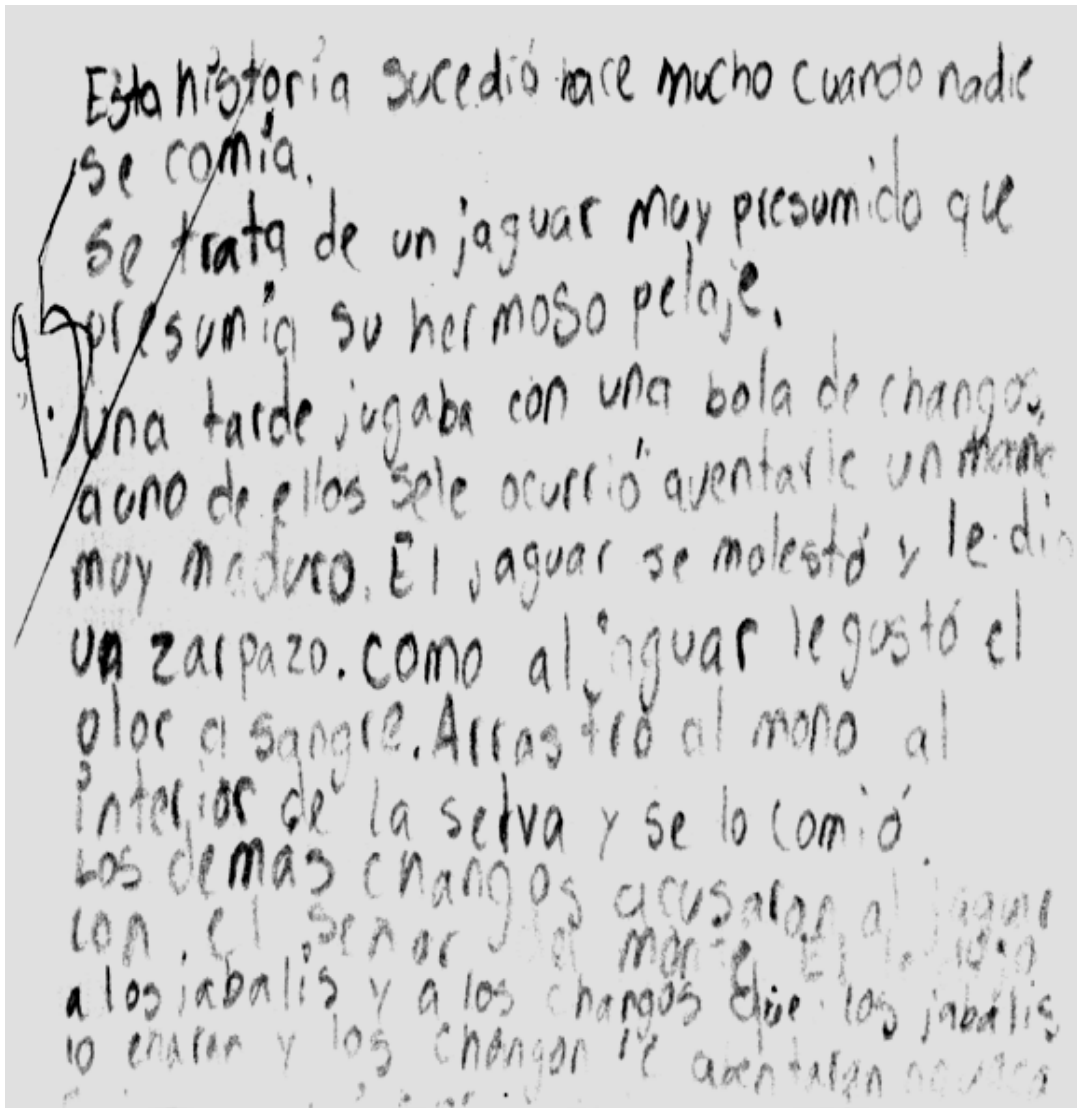 Esta historia sucedió hace mucho cuando nadie
se comía.
Se trata de un jaguar muy presumido que
presumía su hermoso pelaje.
Una tarde jugaba con una bola de changos,
a uno de ellos sele ocurrió aventarle un
muy maduro. El jaguar se molestó y le dio
un zarpazo. como al jaguar le gustó el
olor a sangre. Arrastró al mono al
interior de la selva y se lo comió.
Los demás changos acusaron al jaguar
con el señor
a los jabalís y a los changos que los jabalís
lo y los changon le aventaran